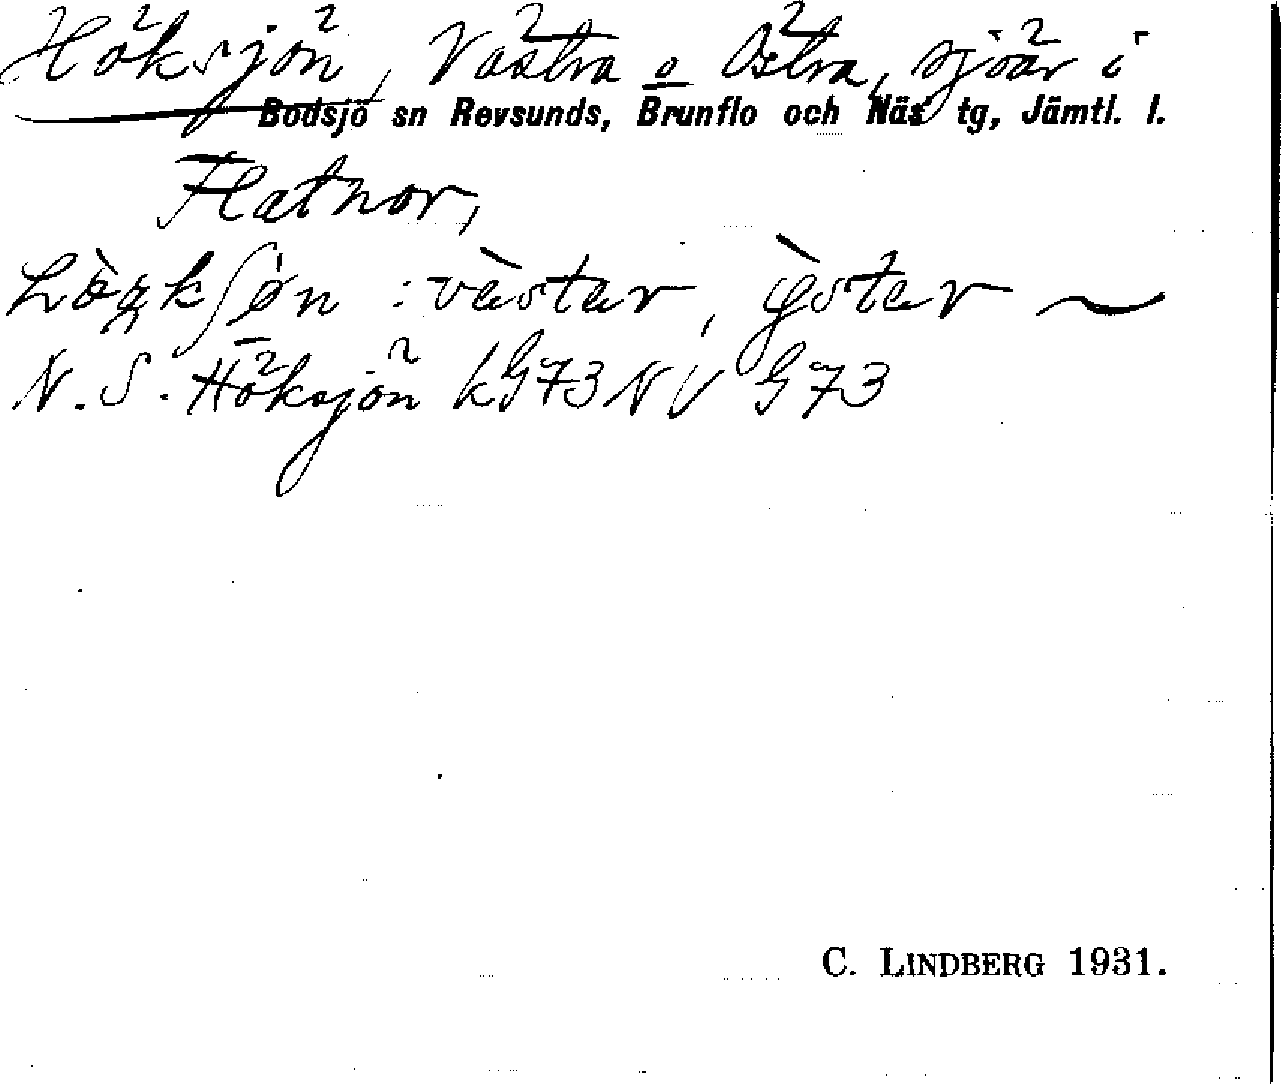 Höksjön, Västra o Östra, sjöar i
Bodsjö sn Revsunds, Brunflo och Näs tg, Jämtl. l.
Flatnor,
: vàstar, östar ~
N. S. Höksjön kG73NV G73
C. LINDBERG 1931.